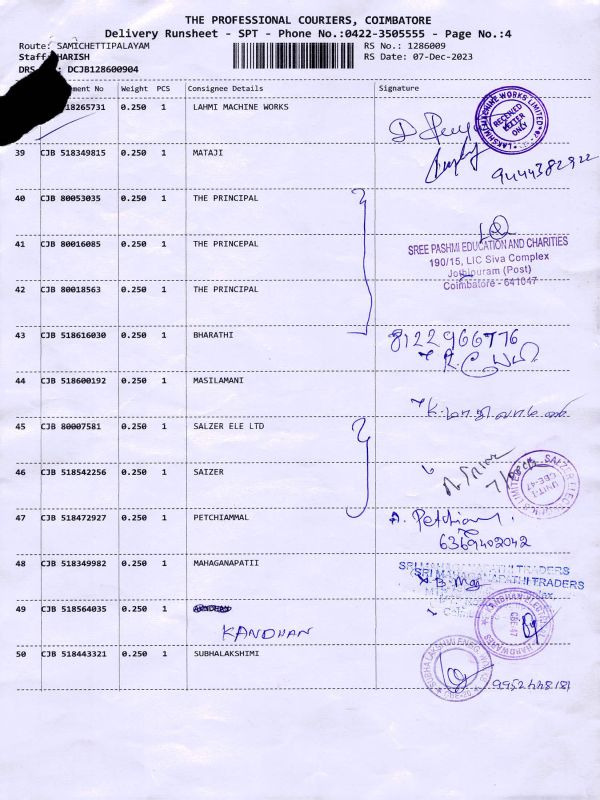 THE PROFESSIONAL COURIERS, COIMBATORE
Delivery Runsheet - SPT - Phone No.:0422-3505555 - Page No.:4
Route: SAMICHETTIPALAYAM RS No.: 1286009
Staff: HARISH RS Date: 07-Dec-2023
DRS : DCJB128600904
ment No Weight PCS Consignee Details Signature
18265731 0.250 1 LAHMI MACHINE WORKS
LAKSHMI MACHINE WORKS LIMITED
RECEIVED LETTER ONLY
39 CJB 518349815 0.250 1 MATAJI
9444382922
40 CJB 80053035 0.250 1 THE PRINCIPAL
41 CJB 80016085 0.250 1 THE PRINCEPAL
SREE PASHMI EDUCATION AND CHARITIES
190/15, LIC Siva Complex
Jothipuram (Post)
Coimbatore - 641047
42 CJB 80018563 0.250 1 THE PRINCIPAL
43 CJB 518616030 0.250 1 BHARATHI
8122966776
44 CJB 518600192 0.250 1 MASILAMANI
45 CJB 80007581 0.250 1 SALZER ELE LTD
46 CJB 518542256 0.250 1 SAIZER
UNIT-I
CBE-47
47 CJB 518472927 0.250 1 PETCHIAMMAL
A. Petchiammal
6369402042
48 CJB 518349982 0.250 1 MAHAGANAPATII
SRI MAHAGANAPATHI TRADERS
SRI MAHAGANAPATHI TRADERS
49 CJB 518564035 0.250 1
KANDHAN
CBE-47
50 CJB 518443321 0.250 1 SUBHALAKSHIMI